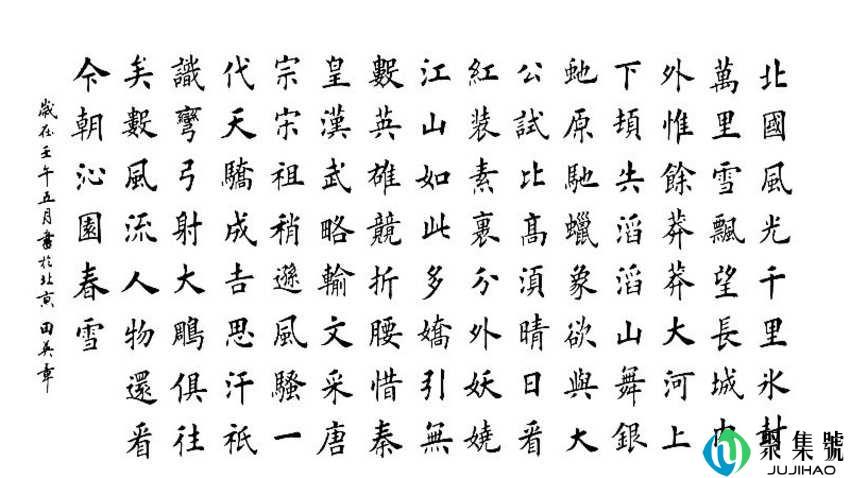 北國風光千里冰封
萬里雪飄望長城内
外惟餘莽莽大河上
下頓失滔滔山舞銀
虵原馳蠟象欲與大
公試比高須晴日看
紅装素裹分外妖嬈
江山如此多嬌引無
數英雄競折腰惜秦
皇漢武略輸文采唐
宗宋祖稍遜風騷一
代天驕成吉思汗祇
識彎弓射大鵰俱往
矣數風流人物還看
今朝沁園春雪
歲在壬午五月書於北京 田英章
聚集號
JUJIHAO